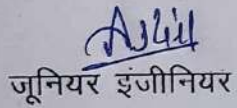 जूनियर इंजीनियर